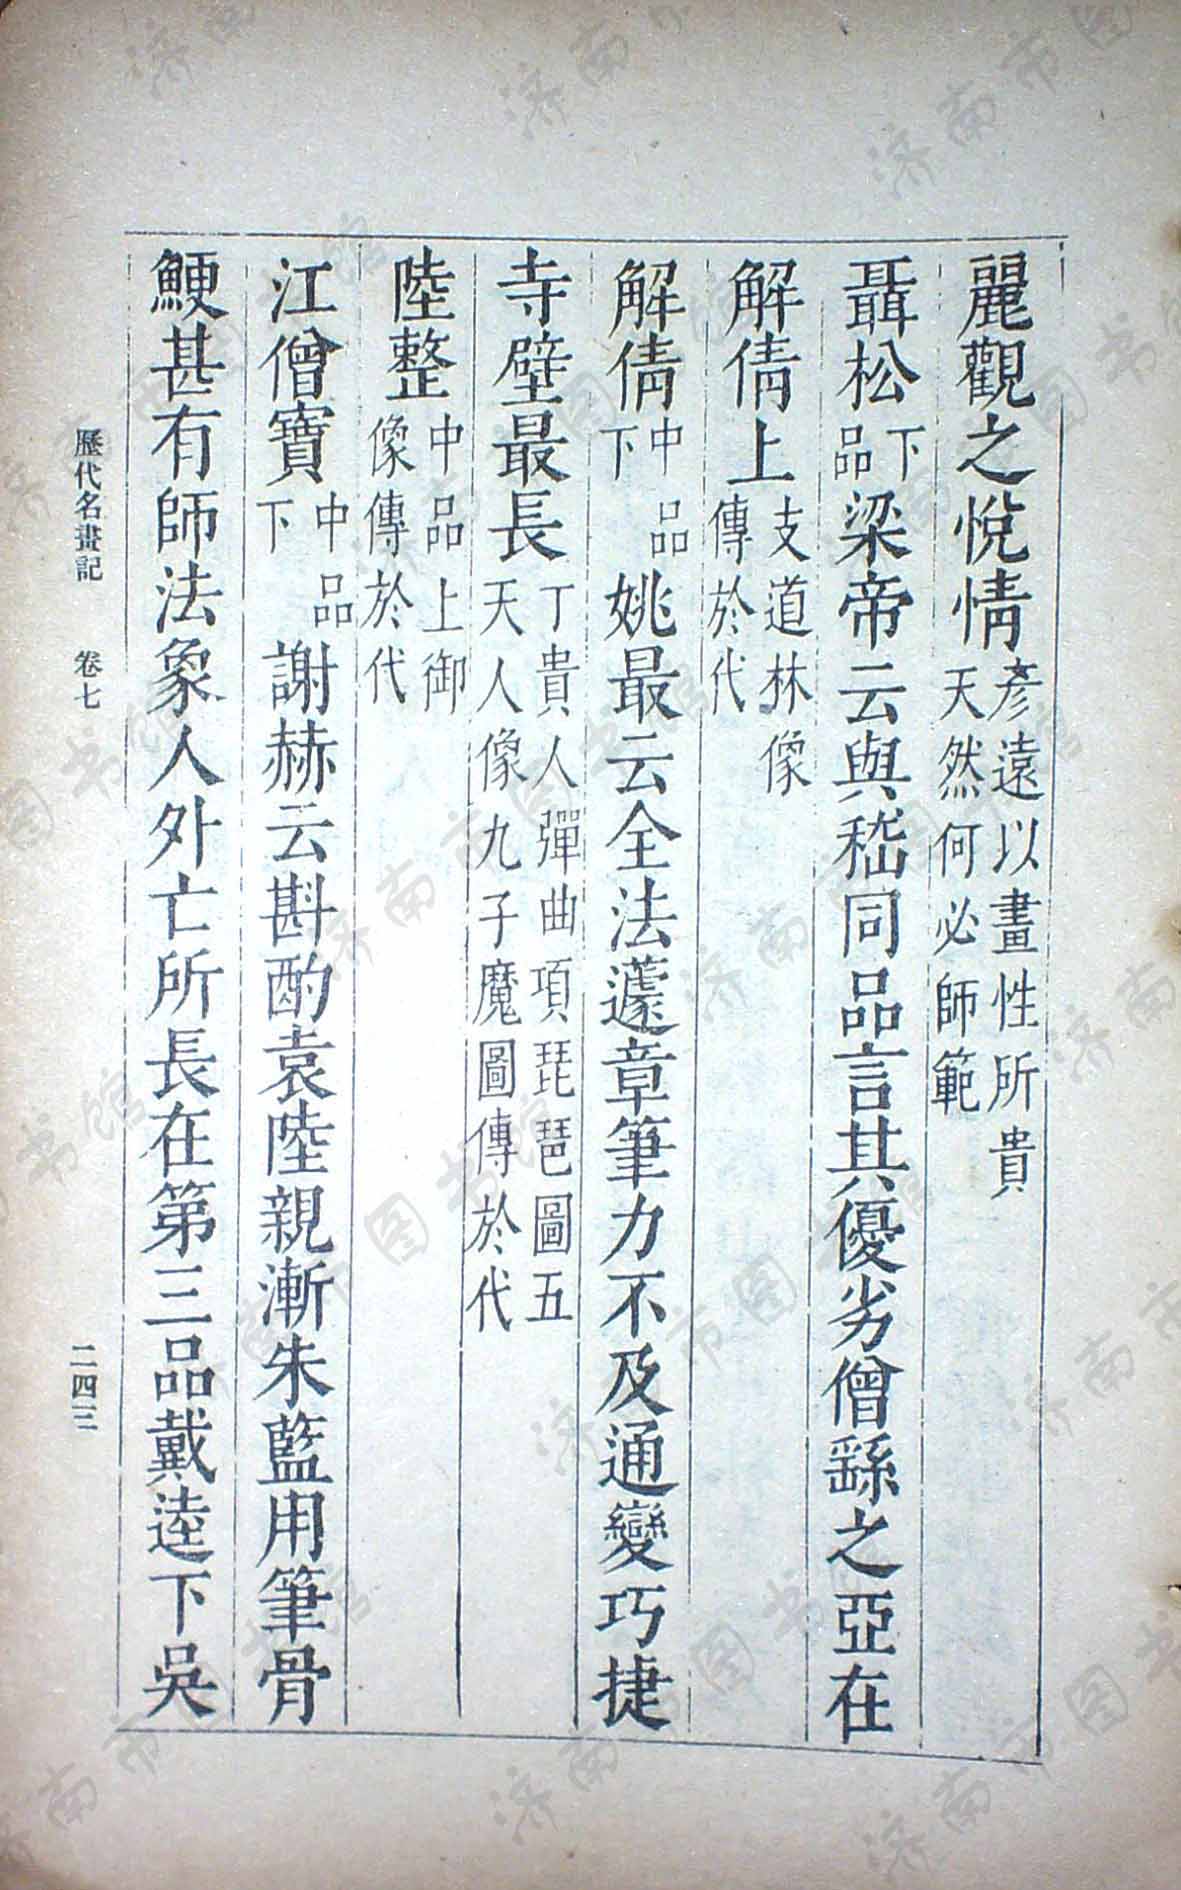 麗觀之悅情彥遠以畫性所貴天然何必師範
聶松下品梁帝云與嵇同品言其優劣僧繇之亞在
解倩上支道林像傳於代
解倩中品下姚最云全法蘧章筆力不及通變巧捷
寺壁最長丁貴人彈曲項琵琶圖五天人像九子魔圖傳於代
陸整中品上御像傳於代
江僧寶中品下謝赫云斟酌袁陸親漸朱藍用筆骨
鯁甚有師法象人外亡所長在第三品戴逵下吳
歷代名畫記 卷七 二四三
济南市图书馆